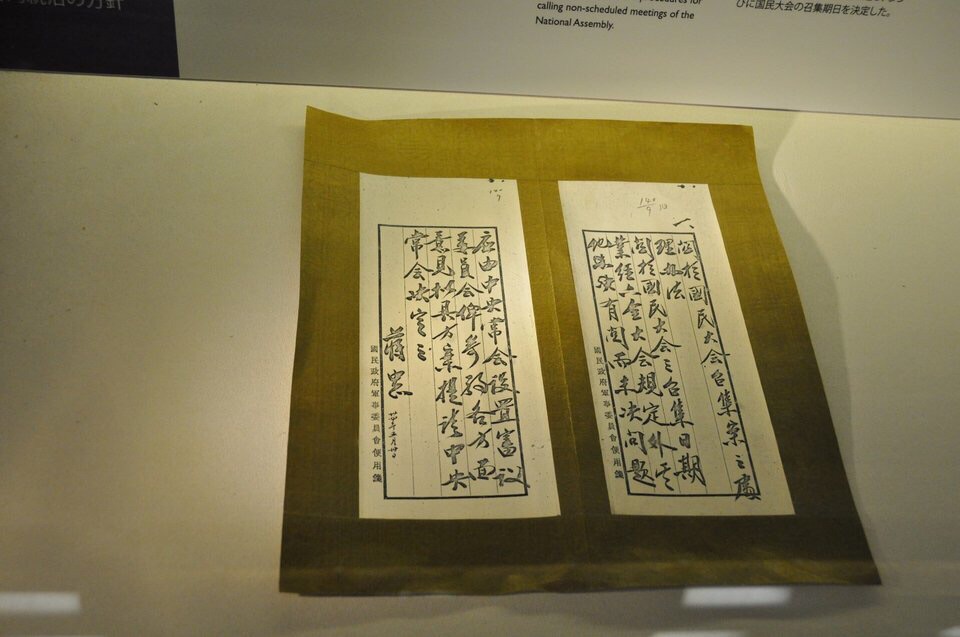 procedures for
calling non-scheduled meetings of the
National Assembly.
びに国民大会の召集期日を決定した。
の方針
一、
關於國民大会召集案之處
理办法
關於國民大会之召集日期
業經六全大会規定外其
他有關而未决問題
國民政府軍事委員會便用箋
应由中央常会設置審议
委員会俾參酌各方面
意見拟具方案提請中央
常会决定之
蔣
國民政府軍事委員會便用箋